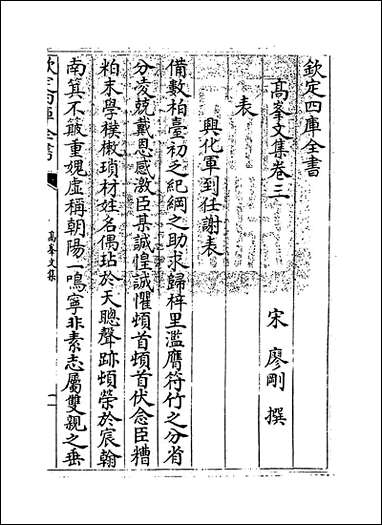 欽定四庫全書
高峯文集卷三
宋 廖剛 撰
表
興化軍到任謝表
備數柏臺初乏紀綱之助求歸梓里濫膺符竹之分省
分凌兢戴恩感激臣某誠惶誠懼頓首頓首伏念臣糟
粕末學樸樕瑣材姓名偶玷於天聰聲跡頓榮於宸翰
南箕不簸重媿虚稱朝陽一鳴寧非素志屬雙親之垂
欽定四庫全書
高峯文集
一